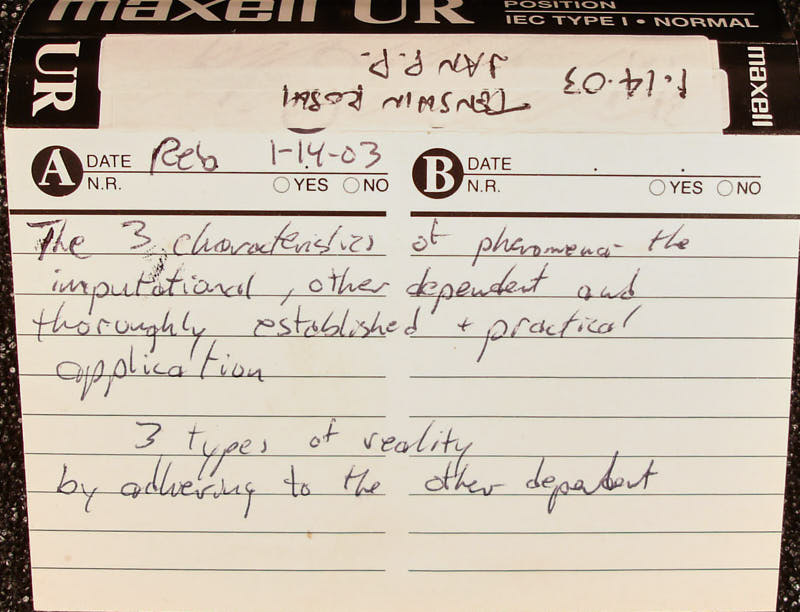 maxell UR POSITION
IEC TYPE I • NORMAL
UR
maxell
1.14.03
TENSHIN ROSHI
JAN P.P.
A DATE Reb 1-14-03
N.R. YES NO
B DATE
N.R. YES NO
The 3 characteristics of phenomena - the
imputational, other dependent and
thoroughly established + practical
application
3 types of reality
by adhering to the other dependent